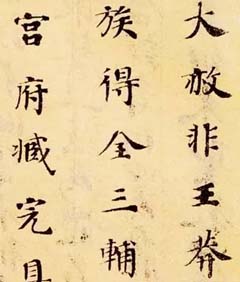 大赦非王莽
族得全三輔
宮府臧完具